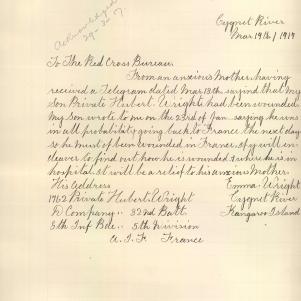 Acknowledged
29-3-17.
Cygnet River
Mar 19th/1917
To The Red Cross Bureau
From an anxious Mother, having
received a Telegram dated Mar 13th saying that my
Son Private Hubert Wright had been wounded.
My Son wrote to me on the 23rd of Jan. saying he was
in all probability going back to France the next day
so he must of been wounded in France. If you will en-
deavor to find out how he is wounded & where he is in
hospital. It will be a relief to his anxious Mother.
His Address Emma Wright
1962 Private Hubert Wright Cygnet River
D Company 32nd Batt. Kangaroo Island
8th Inf Bde 5th Division
A. I. F France